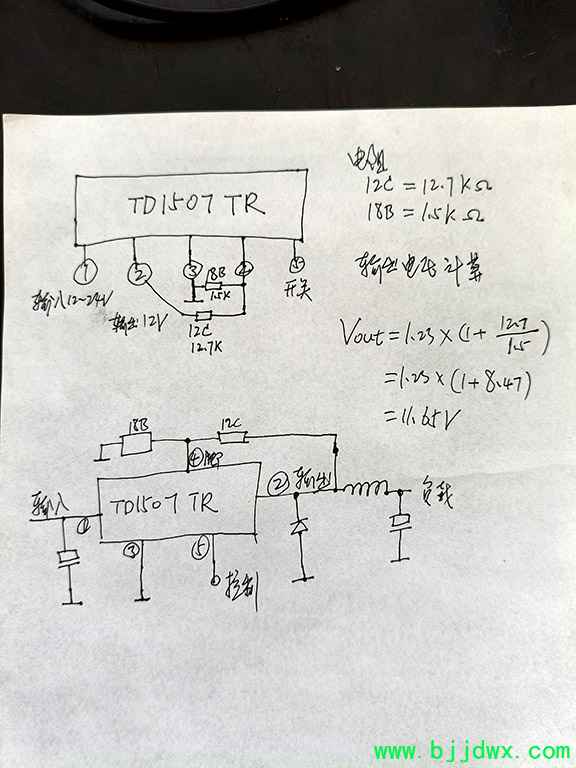 电阻
12C = 12.7KΩ
18B = 1.5KΩ
TD1507 TR
① ② ③ ④ ⑤
18B
1.5K
输入12~24V
输出12V
12C
12.7K
开关
输出电压计算
Vout = 1.23 × (1 + 12.7/1.5)
= 1.23 × (1 + 8.47)
= 11.65V
18B
12C
④
输入
①
TD1507 TR
②
输出
负载
③
⑤
控制
www.bjjdwx.com